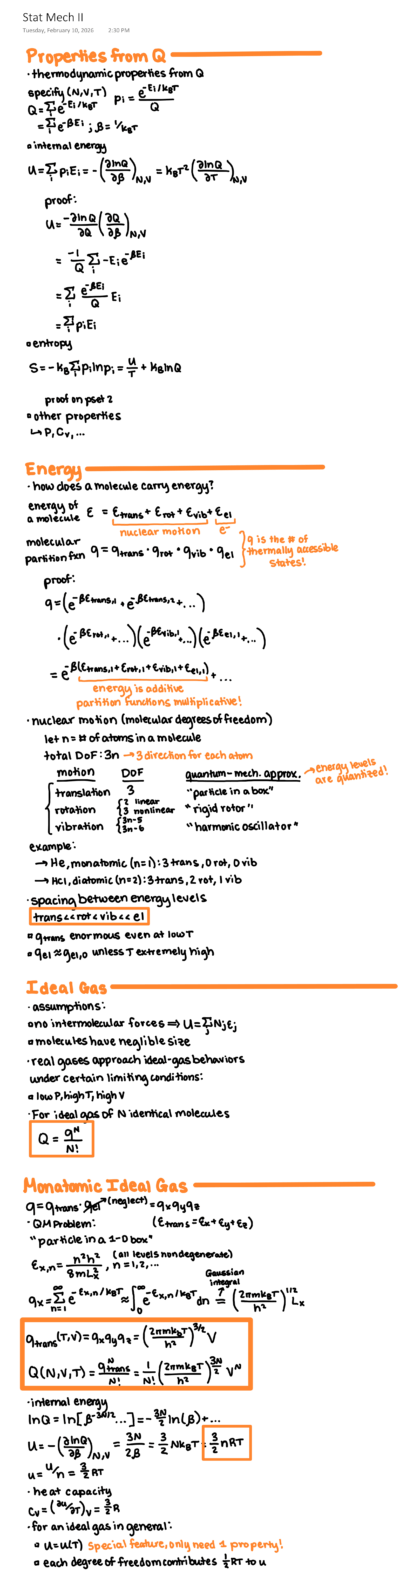 Stat Mech II
Tuesday, February 10, 2026 2:30 PM
Properties from Q
· thermodynamic properties from Q
specify (N,V,T) pᵢ = e^(-Eᵢ/k_BT)/Q
Q = Σᵢ e^(-Eᵢ/k_BT)
= Σᵢ e^(-βEᵢ) ; β = 1/k_BT
▫ internal energy
U = Σᵢ pᵢEᵢ = -(∂lnQ/∂β)_N,V = k_BT²(∂lnQ/∂T)_N,V
proof:
U = -∂lnQ/∂Q (∂Q/∂β)_N,V
= -1/Q Σᵢ -Eᵢe^(-βEᵢ)
= Σᵢ e^(-βEᵢ)/Q Eᵢ
= Σᵢ pᵢEᵢ
▫ entropy
S = -k_B Σᵢ pᵢ ln pᵢ = U/T + k_B lnQ
proof on pset 2
▫ other properties
↳ P, Cᵥ, ...
Energy
· how does a molecule carry energy?
energy of a molecule ε = ε_trans + ε_rot + ε_vib + ε_el
nuclear motion e⁻
molecular partition fxn q = q_trans · q_rot · q_vib · q_el
q is the # of thermally accessible states!
proof:
q = (e^(-βε_trans,1) + e^(-βε_trans,2) + ...)
· (e^(-βε_rot,1) + ...)(e^(-βε_vib,1) + ...)(e^(-βε_el,1) + ...)
= e^(-β(ε_trans,1 + ε_rot,1 + ε_vib,1 + ε_el,1)) + ...
energy is additive
partition functions multiplicative!
· nuclear motion (molecular degrees of freedom)
let n = # of atoms in a molecule
total DoF: 3n → 3 direction for each atom
motion DoF quantum-mech. approx. → energy levels are quantized!
translation 3 "particle in a box"
rotation {2 linear 3 nonlinear "rigid rotor"
vibration {3n-5 3n-6 "harmonic oscillator"
example:
→ He, monatomic (n=1): 3 trans, 0 rot, 0 vib
→ HCl, diatomic (n=2): 3 trans, 2 rot, 1 vib
· spacing between energy levels
trans << rot < vib << el
▫ q_trans enormous even at low T
▫ q_el ≈ q_el,0 unless T extremely high
Ideal Gas
· assumptions:
▫ no intermolecular forces ⇒ U = Σⱼ Nⱼεⱼ
▫ molecules have neglible size
· real gases approach ideal-gas behaviors
under certain limiting conditions:
▫ low P, high T, high V
· For ideal gas of N identical molecules
Q = q^N/N!
Monatomic Ideal Gas
q = q_trans · q_el → (neglect) = q_x q_y q_z
· QM Problem: (ε_trans = ε_x + ε_y + ε_z)
"particle in a 1-D box"
ε_x,n = n²h²/8mL_x² , n = 1,2,... (all levels nondegenerate)
Gaussian integral
q_x = Σ_(n=1)^∞ e^(-ε_x,n/k_BT) ≈ ∫₀^∞ e^(-ε_x,n/k_BT) dn = (2πmk_BT/h²)^(1/2) L_x
q_trans(T,V) = q_x q_y q_z = (2πmk_BT/h²)^(3/2) V
Q(N,V,T) = q_trans^N/N! = 1/N! (2πmk_BT/h²)^(3N/2) V^N
· internal energy
lnQ = ln[β^(-3N/2) ...] = -3N/2 ln(β) + ...
U = -(∂lnQ/∂β)_N,V = 3N/2β = 3/2 Nk_BT = 3/2 nRT
u = U/n = 3/2 RT
· heat capacity
Cᵥ = (∂u/∂T)ᵥ = 3/2 R
· for an ideal gas in general:
▫ u = u(T) special feature, only need 1 property!
▫ each degree of freedom contributes ½RT to u